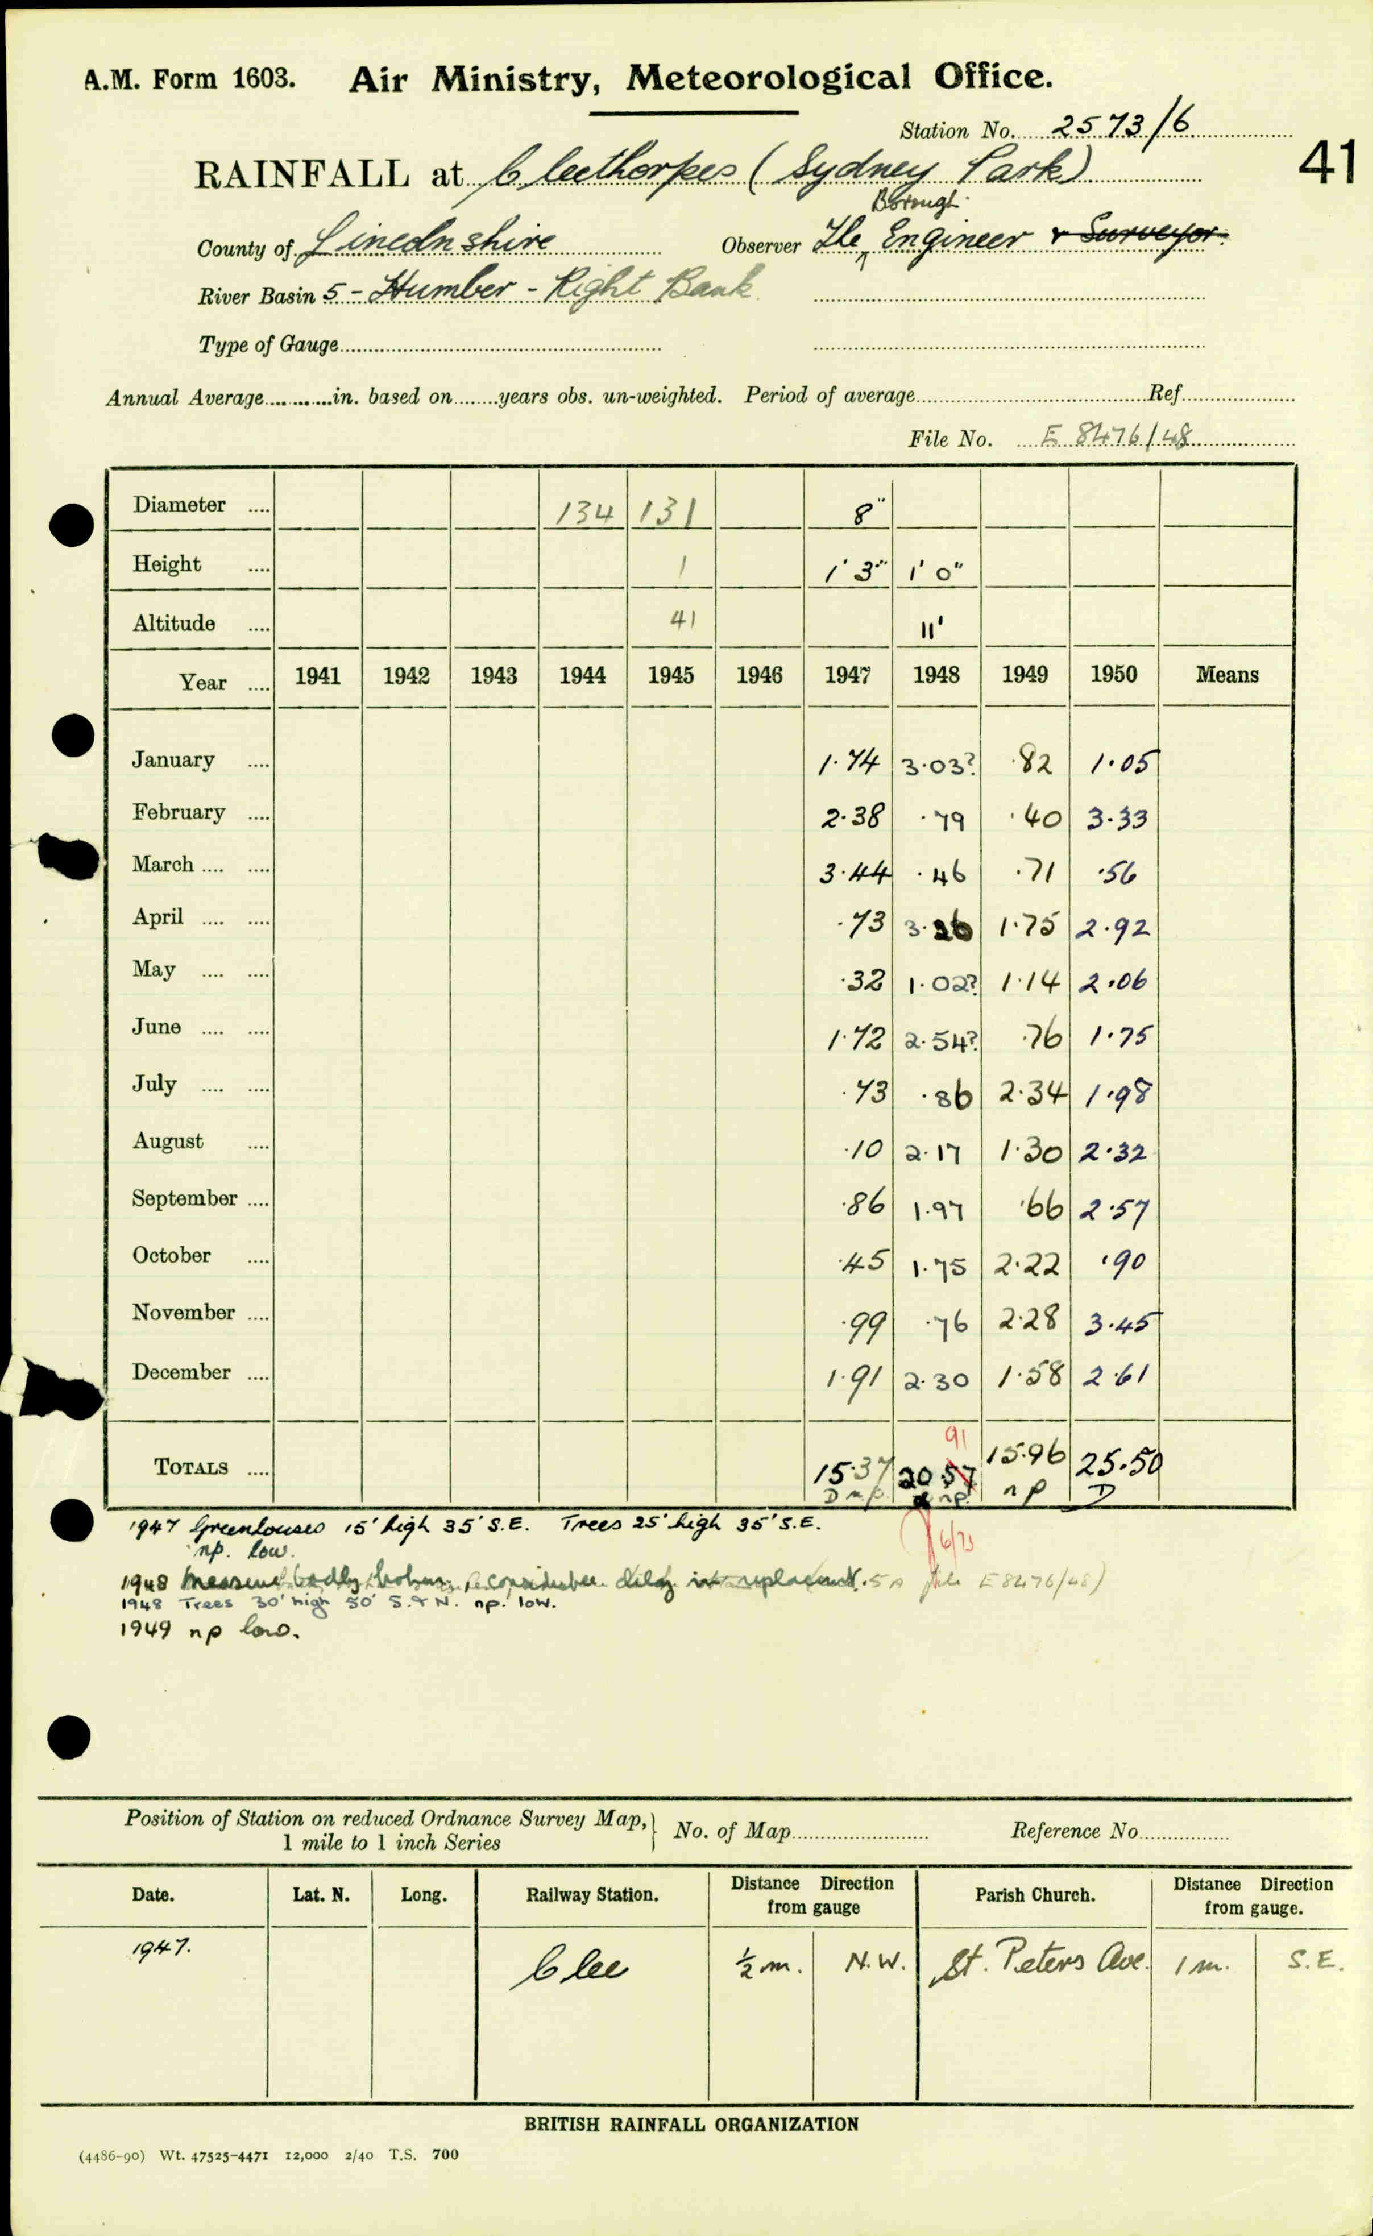 A.M. Form 1603. Air Ministry, Meteorological Office.
Station No. 2573/6
41
RAINFALL at Cleethorpes (Sydney Park)
Borough
County of Lincolnshire Observer The Engineer & Surveyor.
River Basin 5 - Humber - Right Bank
Type of Gauge
Annual Average in. based on years obs. un-weighted. Period of average Ref
File No. E 8476/48
Diameter 134 131 8"
Height 1 1' 3" 1' 0"
Altitude 41 11'
Year 1941 1942 1943 1944 1945 1946 1947 1948 1949 1950 Means
January 1.74 3.03? .82 1.05
February 2.38 .79 .40 3.33
March 3.44 .46 .71 .56
April .73 3.26 1.75 2.92
May .32 1.02? 1.14 2.06
June 1.72 2.54? .76 1.75
July .73 .86 2.34 1.98
August .10 2.17 1.30 2.32
September .86 1.97 .66 2.57
October .45 1.75 2.22 .90
November .99 .76 2.28 3.45
December 1.91 2.30 1.58 2.61
91
TOTALS 15.37 20.57 15.96 25.50
D n.p. np. np D
1947 Greenhouses 15' high 35' S.E. Trees 25' high 35' S.E.
np. low.
6/73
1948 Measure badly broken considerable delay in replacement. file E8476/48)
1948 Trees 30' high 50' S. & N. np. low.
1949 np low.
Position of Station on reduced Ordnance Survey Map, 1 mile to 1 inch Series No. of Map Reference No
Date. Lat. N. Long. Railway Station. Distance Direction from gauge Parish Church. Distance Direction from gauge.
1947. Clee ½ m. N.W. St. Peters Ave. 1 m. S.E.
BRITISH RAINFALL ORGANIZATION
(4486-90) Wt. 47525-4471 12,000 2/40 T.S. 700